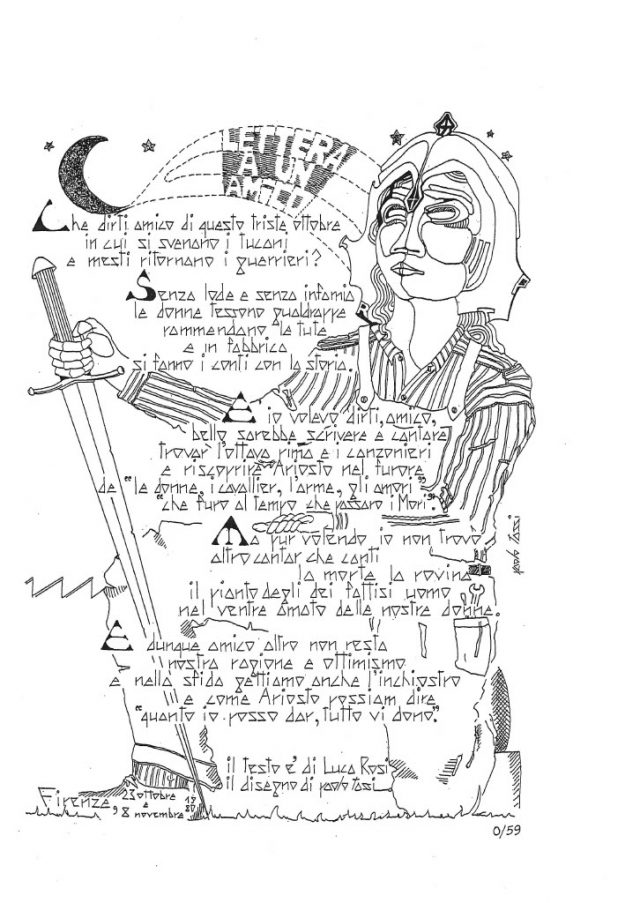 LETTERA
A UN
AMICO
Che dirti amico di questo triste ottobre
in cui si svenano i tucani
e mesti ritornano i guerrieri?
Senza lode e senza infamia
le donne tessono gualdrappe
rammendano le tute
e in fabbrica
si fanno i conti con la storia.
E io volevo dirti, amico,
bello sarebbe scrivere e cantare
trovar l'ottava rima e i canzonieri
e riscoprire Ariosto nel furore
de "le donne, i cavallier, l'arme, gli amori"
"che furo al tempo che passaro i Mori".
Ma pur volendo io non trovo
altro cantar che canti
la morte la rovina
il pianto degli dei fattisi uomo
nel ventre amato delle nostre donne.
E dunque amico altro non resta
nostra ragione e ottimismo
e nella sfida gettiamo anche l'inchiostro
e come Ariosto possiam dire
"quanto io posso dar, tutto vi dono."
il testo e' di Luca Rosi
il disegno di paolo tosi
Firenze, 23 ottobre e 8 novembre 1980
paolo tosi
0/59